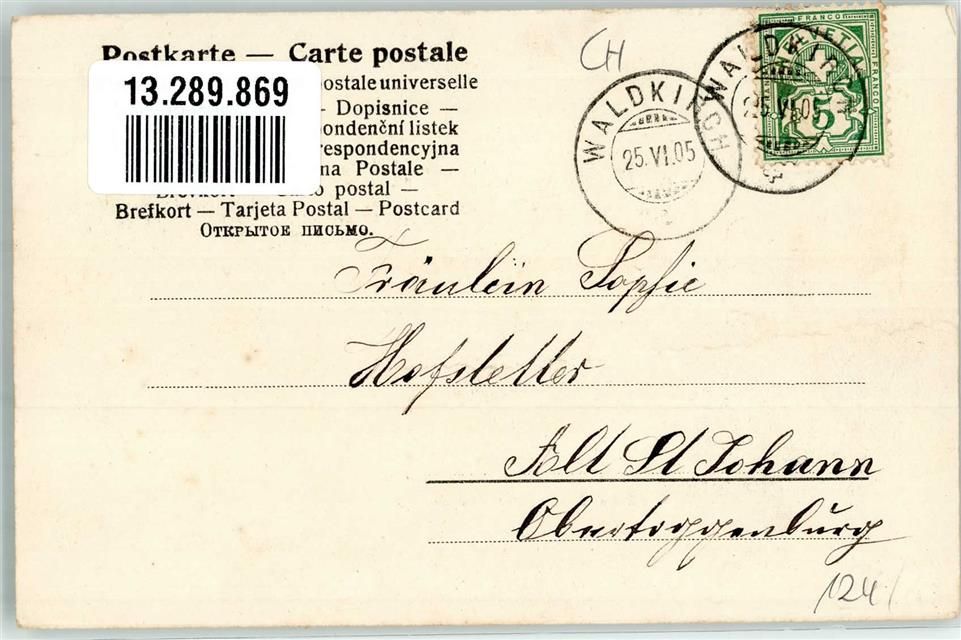 Postkarte — Carte postale
13.289.869
postale universelle
— Dopisnice —
pondenční listek
respondencyjna
na Postale —
postal —
Brefkort — Tarjeta Postal — Postcard
Открытое письмо.
CH
WALDKI
25.VI.05
WALD
25.VI.05
HELVETIA
FRANCO
FRANCO
5
Fräulein Sophie
Hofstetter
Alt St Johann
Obertoggenburg
124